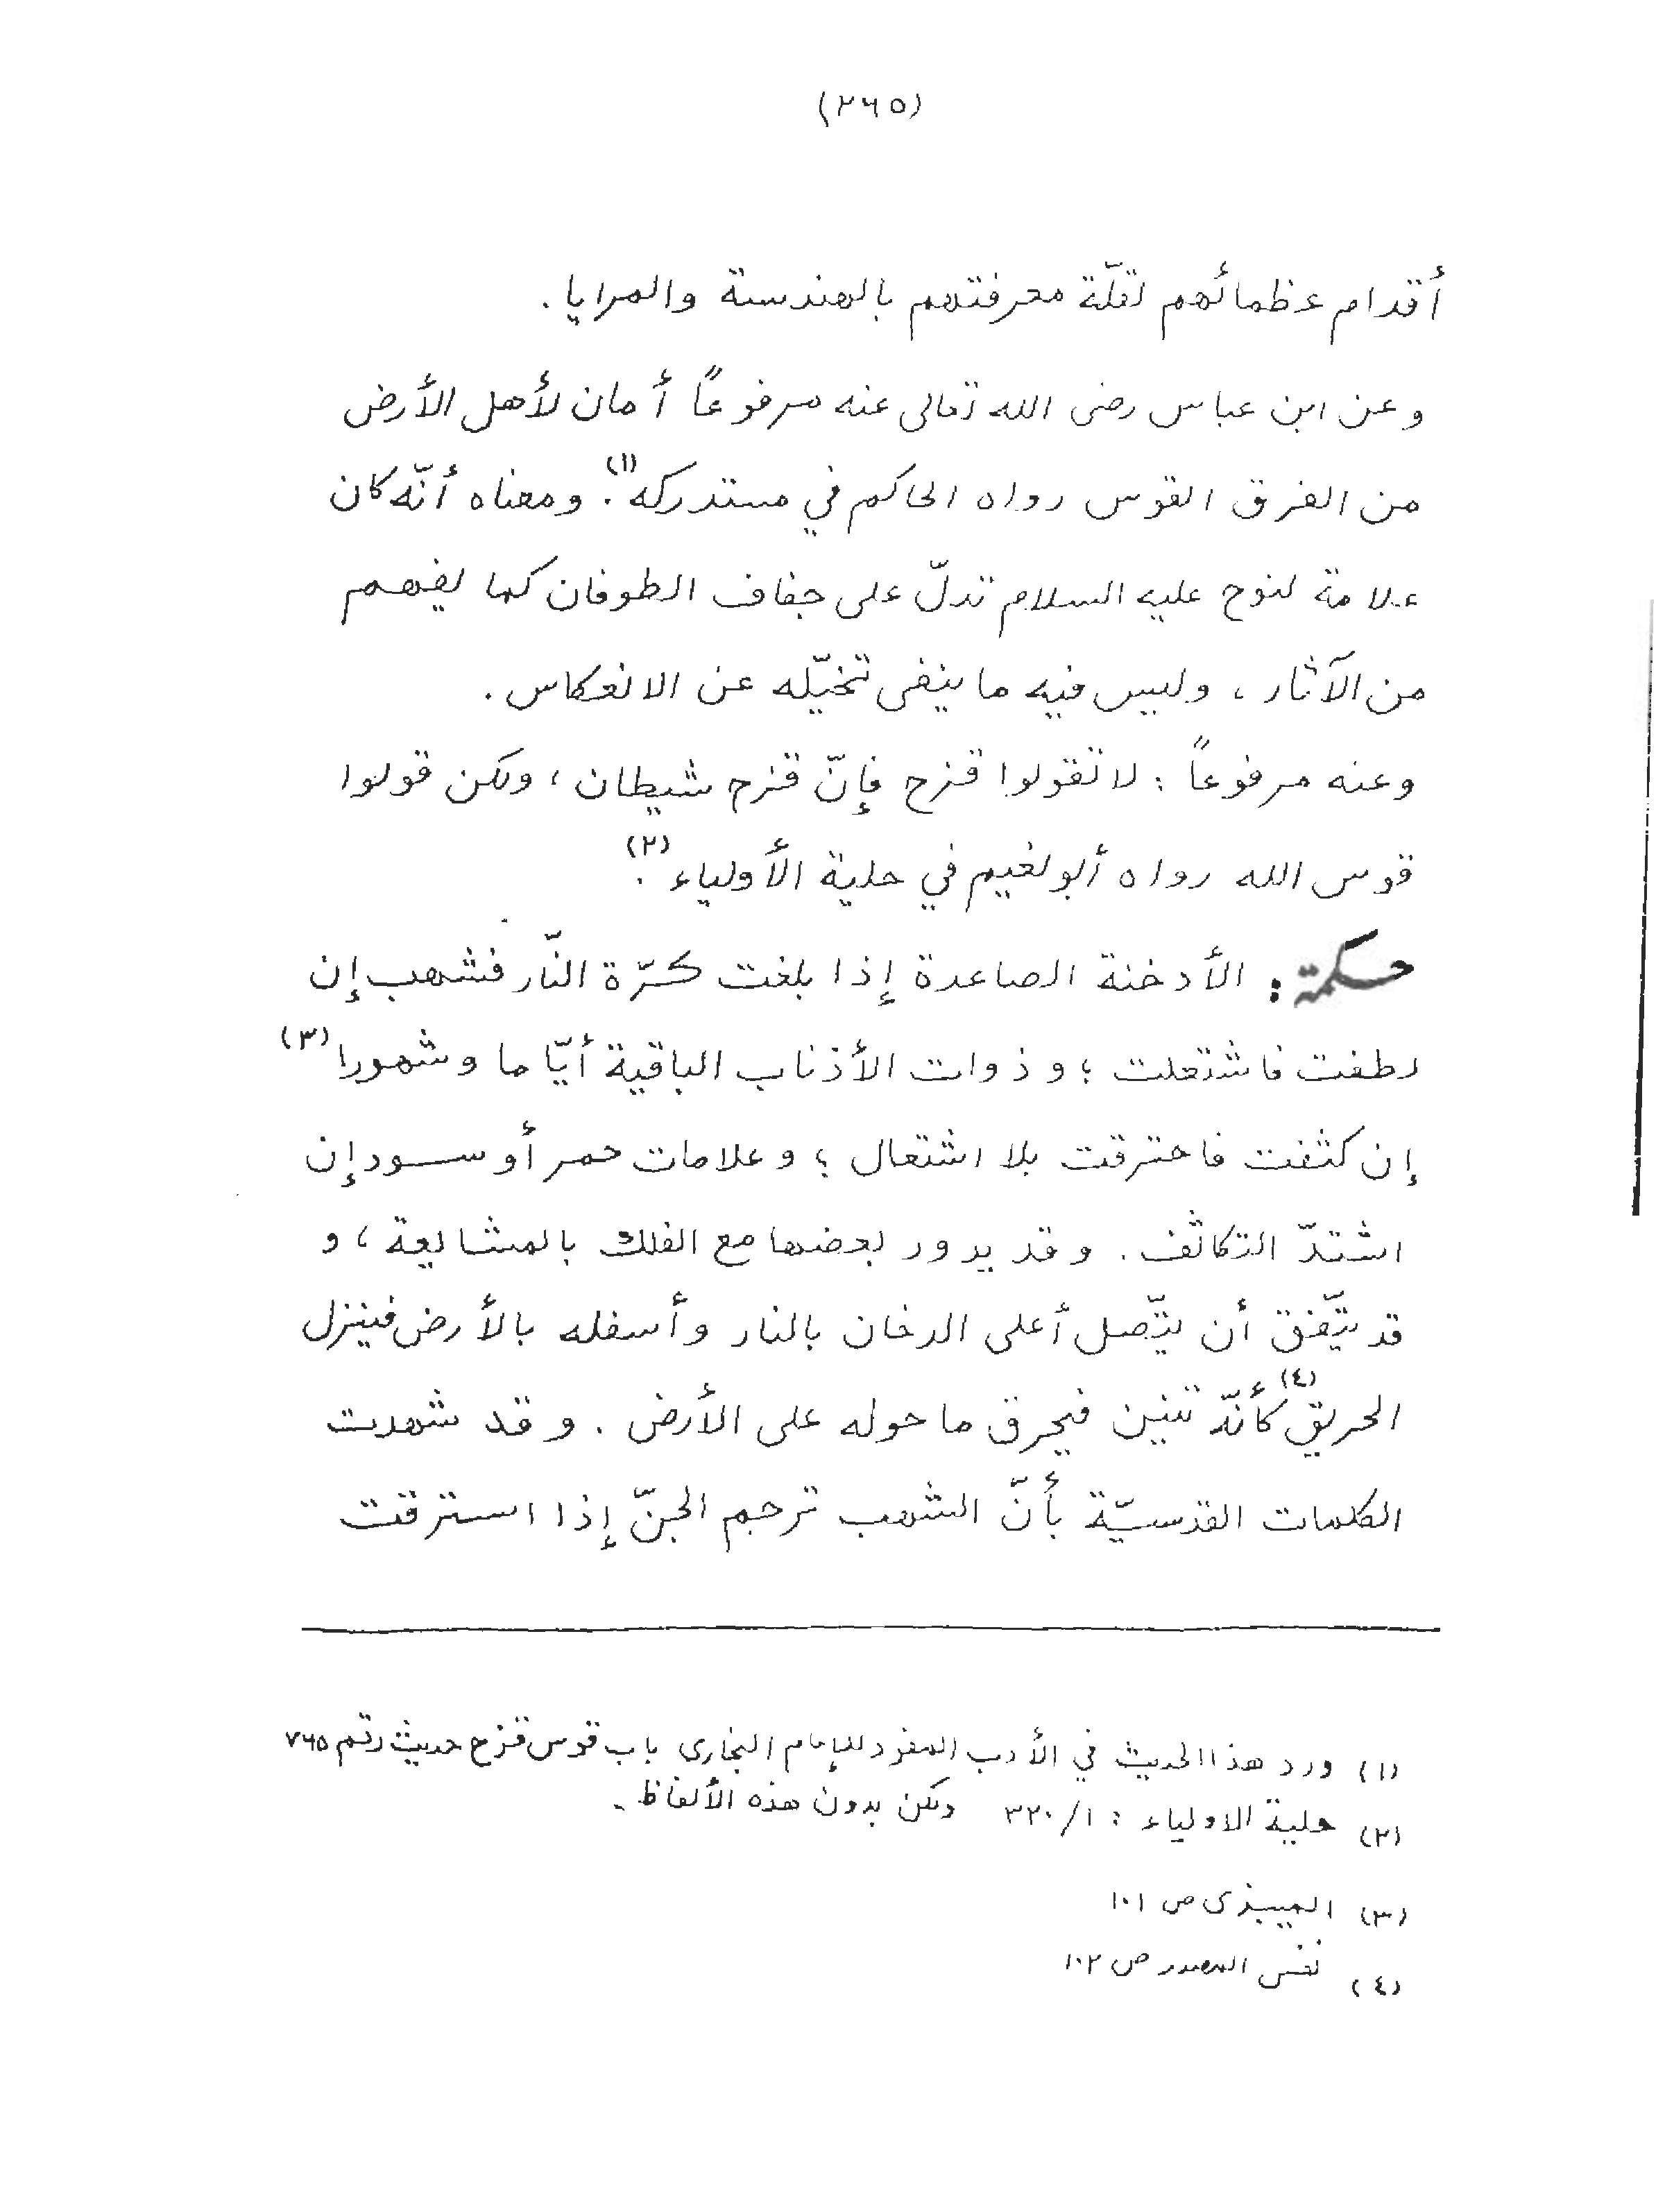 (٢٦٥)
أقدام عظمائهم لقلّة معرفتهم بالهندسة والمرايا .
وعن ابن عباس رضى الله تعالى عنه مرفوعاً أمان لأهل الأرض
من الغرق القوس رواه الحاكم في مستدركه (١). ومعناه أنّه كان
علامة لنوح عليه السلام تدلّ على جفاف الطوفان كما يفهم
من الآثار ، وليس فيه ما ينفى تخيّله عن الانعكاس .
وعنه مرفوعاً : لا تقولوا قزح فإنّ قزح شيطان ، ولكن قولوا
قوس الله رواه أبو نعيم في حلية الأولياء (٢).
حكمة : الأدخنة الصاعدة إذا بلغت كرّة النّار فشهب إن
لطفت فاشتعلت ؛ و ذوات الأذناب الباقية أيّا ما وشهورا (٣)
إن كثفت فاحترقت بلا اشتعال ؛ وعلامات حمر أو سود إن
اشتدّ التكاثف . وقد يدور بعضها مع الفلك بالمشايعة ، و
قد يتّفق أن يتّصل أعلى الدخان بالنار وأسفله بالأرض فينزل
الحريق (٤) كأنّه تنين فيحرق ما حوله على الأرض . وقد شهدت
الكلمات القدسيّة بأنّ الشهب ترجم الجنّ إذا استرقت
(١) ورد هذا الحديث في الأدب المفرد للإمام البخارى باب قوس قزح حديث رقم ٧٦٥
(٢) حلية الاولياء : ١/٣٢٠ ولكن بدون هذه الألفاظ .
(٣) الميبذى ص ١٠١
(٤) نفس المصدر ص ١٠٢